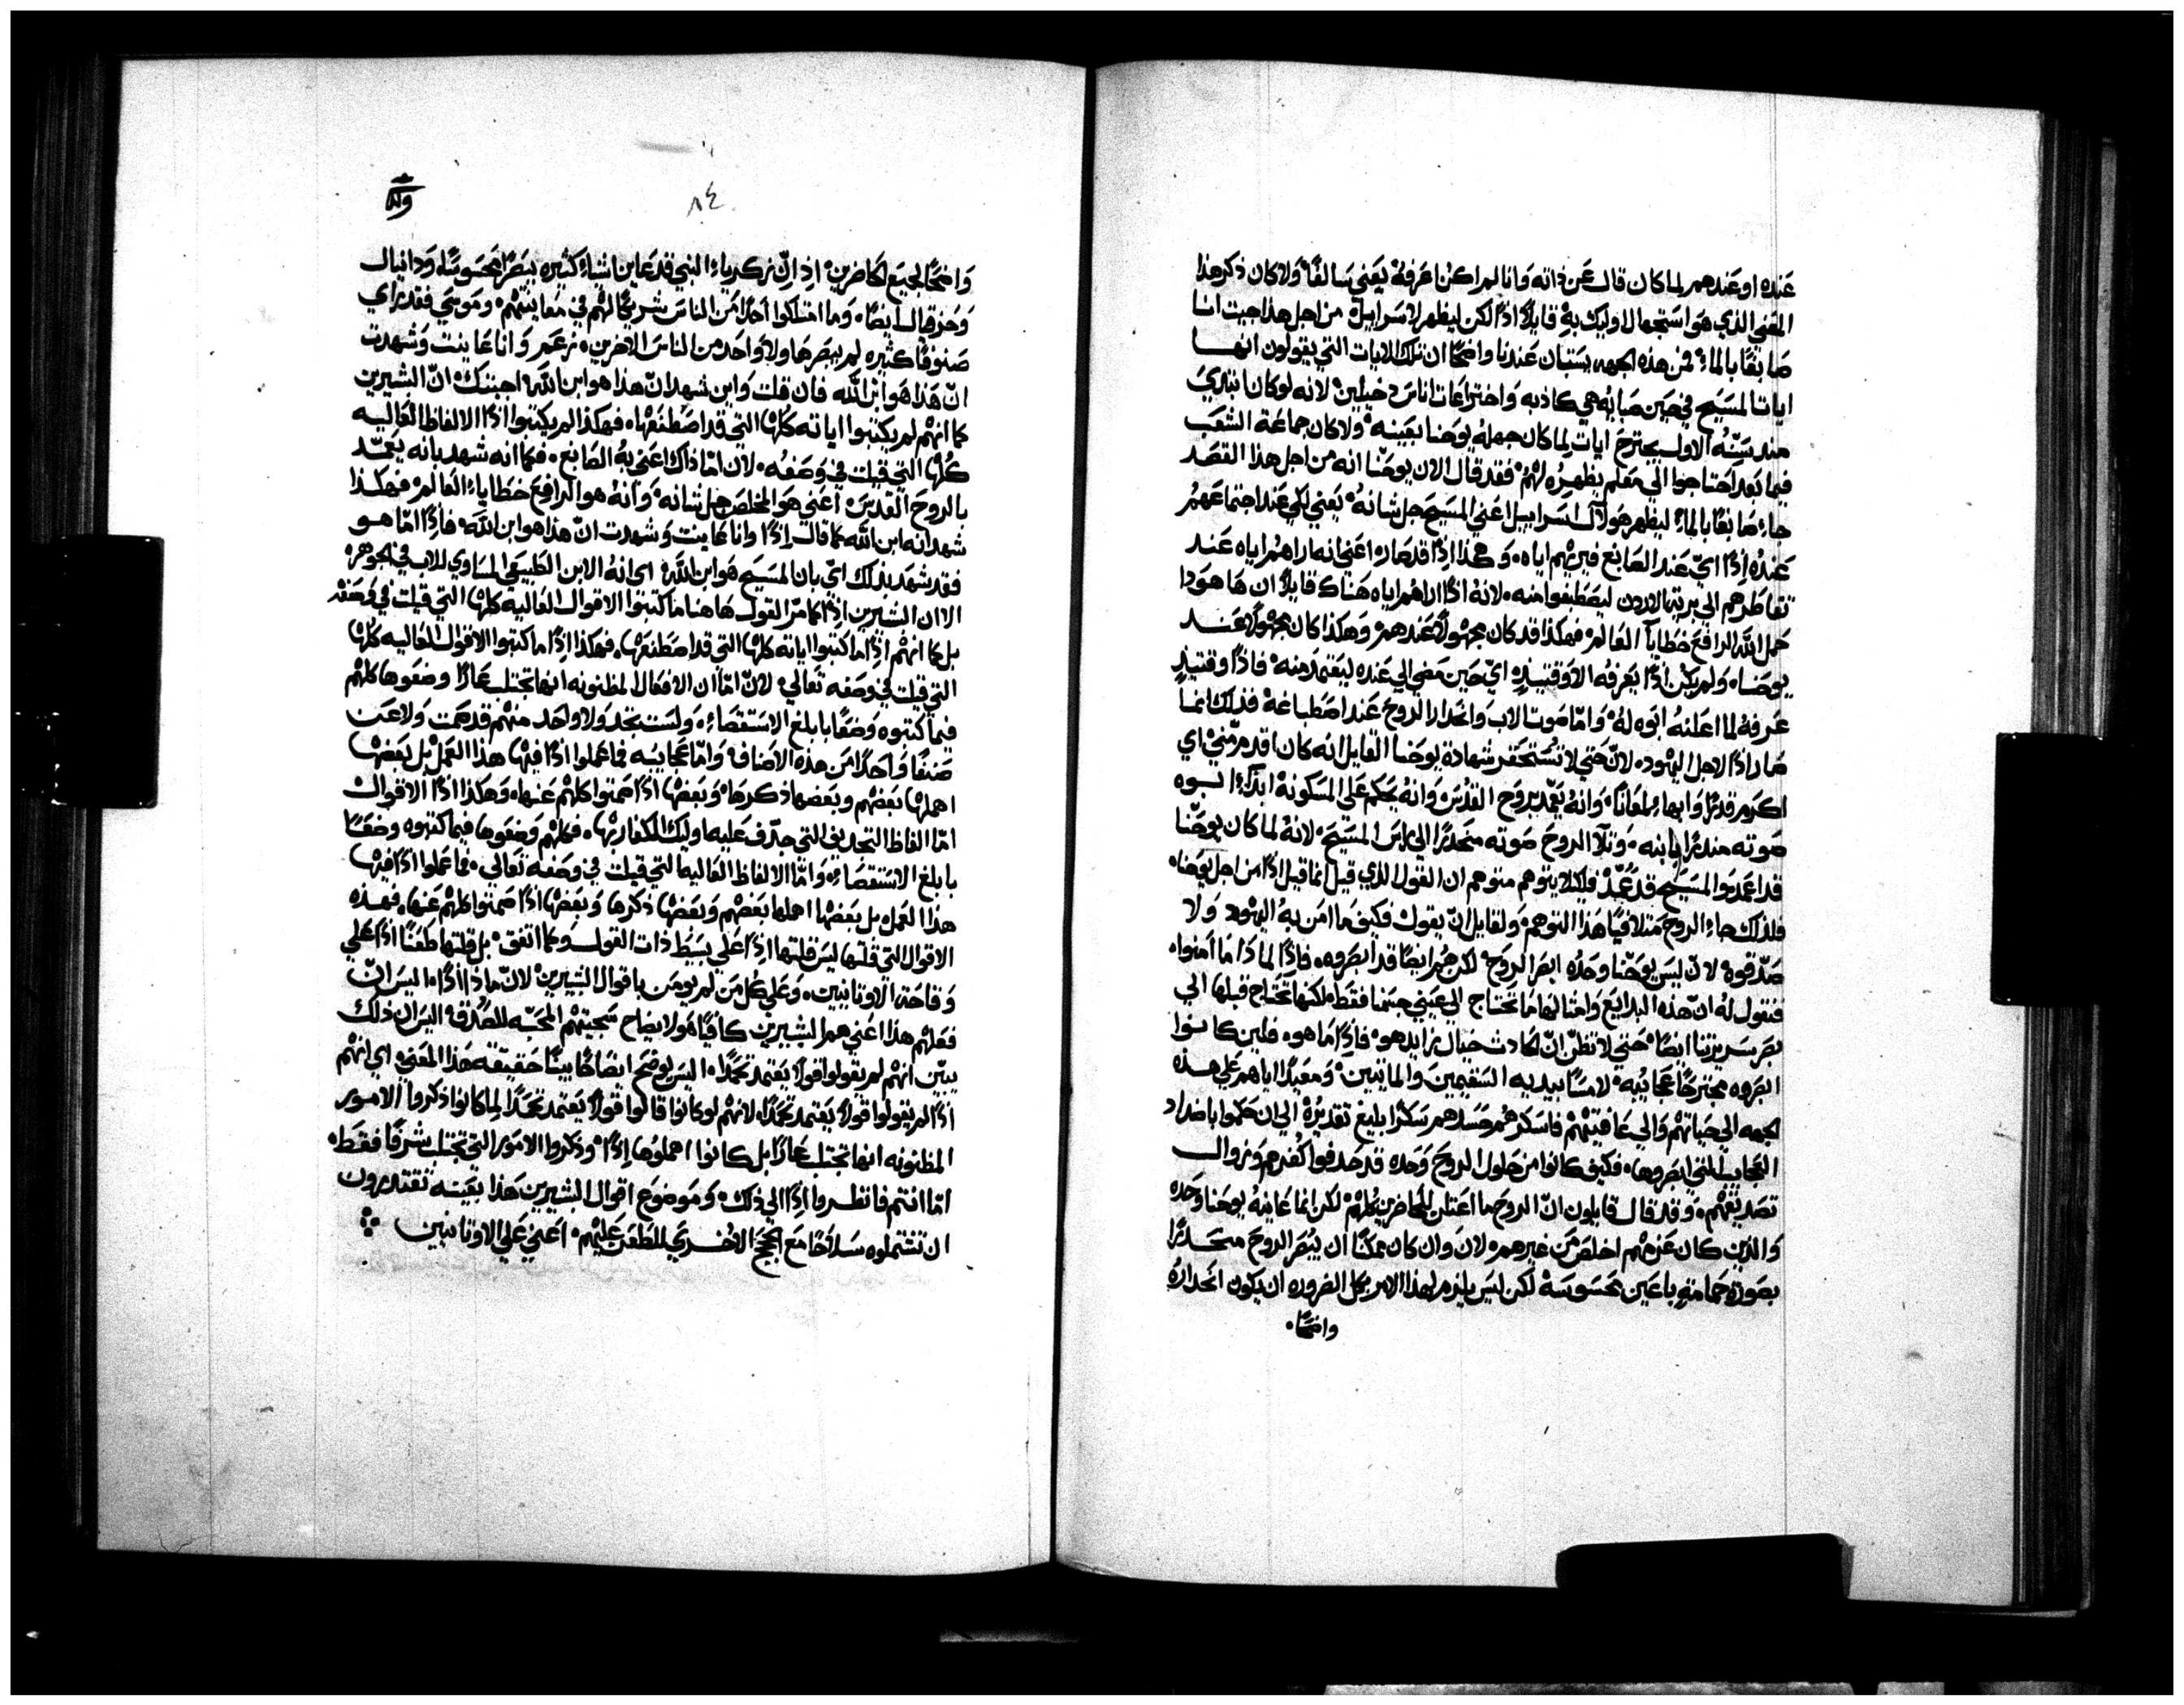 عنده او عندهم لما كان قال عن ذاته وانا لم اكن اعرفه يعني سالفًا ولا كان ذكر هذا
المعنى الذي هو استجهال اوليك به قايلًا اذًا لكن ليظهر لاسراييل من اجل هذا جيت انا
صابغًا بالماء فمن هذه الجهه يستبان عندنا واضحًا ان تلك الايات التي يقولون انها
ايات المسيح في حين صبايه هي كاذبه واختراعات اناس دخيلين لانه لو كان ابتدي
منذ سنه الاول يجترح ايات لما كان جهله يوحنا بعينه ولا كان جماعة الشعب
فيما بعد احتاجوا الى معلم يظهره لهم فقد قال الان يوحنا انه من اجل هذا القصد
جاء صابغًا بالماء ليظهر هولال اسراييل اعني المسيح جل شانه يعني لكي عند اجتماعهم
عنده اذًا اي عند الصابغ فيريهم اياه وهذا اذًا قد صار اعني انه اراهم اياه عند
تقاطرهم الى برية الاردن ليصطبغوا منه لانه اذًا اراهم اياه هناك قايلًا ان ها هو ذا
حمل الله الرافع خطايا العالم فهكذا قد كان مجهولًا عندهم وهكذا كان مجهولًا عند
يوحنا ولم يكن اذًا يعرفه الا وقتيذٍ اي حين مضي الي عنده ليعتمد منه فاذًا وقتيذٍ
عرفه لما اعلنه ابوه له واما صوت الاب وانحدار الروح عند اصطباغه فذلك انما
صار اذًا لاجل اليهود لان حتي لا تُستحقر شهادة يوحنا القايل انه كان اقدم منيّ اي
اكرم قدرًا وابهاء لمعانًا وانه يعمد بروح القدس وانه يحكم علي المسكونه ابداء ابوه
صوته منذرًا بابنه وتلا الروح صوته منحدرًا الي راس المسيح لانه لما كان يوحنا
قد اعمد والمسيح قد عُمّد فلكيلا يتوهم متوهم ان القول الذي قيل انما قيل اذًا من اجل يوحنا
فلذلك جاء الروح متلافيًا هذا التوهم ولقايل انّ يقول فكيف ما امن به اليهود ولا
صدّقوه لان ليس يوحنا وحده ابصر الروح لكن هم ايضًا قد ابصروه فاذًا لماذا ما امنوا
فنقول له انّ هذه البدايع وامثالها ما تحتاج الي عيني جسمنا فقط لكنها تحتاج قبلها الي
بصر سريرتنا ايضًا حتي لا تظن انّ الحادث خيال زايد هو فاذًا ما هو فلين كانوا
ابصروه مجترحًا عجايبه لامسًا بيديه السقيمين والمايتين ومعيدًا اياهم علي هذه
الجهه الي حياتهم والي عافيتهم فاسكرهم حسدهم سكرًا بليغ تقديرُه الي ان حكموا باضداد
العجايب التي ابصروها فكيف كانوا من حلول الروح وحده قد حذفوا كفرهم وزوال
تصديقهم وقد قال قايلون انّ الروح ما اعتلن للحاضرين كلهم لكن انما عاينهُ يوحنا وحده
والذين كان عزمهم اخلص من غيرهم لان وان كان ممكنًا ان يُبصر الروح منحدرًا
بصورة حمامةٍ باعين محسوسة لكن ليس يلزم لهذا الامر بكل الضروره ان يكون انحداره
واضحًا
٨٤
واضحًا لجميع الحاضرين اذ انّ زكرياء النبي قد عاين اشياء كثيره ببصر المحسوسة ودانيال
وحزقيال ايضًا وما امتلكوا احدًا من الناس شريكًا لهم في معاينتهم وموسي فقد راي
صنوفًا كثيره لم يبصرها ولا واحد من الناس الاخرين زعم وانا عاينت وشهدت
انّ هذا هو ابن الله فان قلت واين شهد انّ هذا هو ابن الله اجبتك انّ البشيرين
كما انهم لم يكتبوا اياته كلها التي قد اصطنعها فهكذا لم يكتبوا اذًا الالفاظ العاليه
كلها التي قيلت في وصفه لان امّا ذاك اعني به الصابغ فكما انه شهد بانه يعمّد
بالروح القدس اعني هو المخلص جل شانه وانه هو الرافع خطاياء العالم فهكذا
شهد انه ابن الله كما قال اذًا وانا عاينت وشهدت انّ هذا هو ابن الله فاذًا امّا هو
فقد شهد بذلك اي بان المسيح هو ابن الله اي انه الابن الطبيعي المساوي للاب في الجوهر
الا ان البشيرين اذًا كما مرّ القول هاهنا ما كتبوا الاقوال العالية كلها التي قيلت في وصفه
بل كما انهم اذًا ما كتبوا اياته كلها التي قد اصطنعها فهكذا اذًا ما كتبوا الاقوال العاليه كلها
التي قيلت في وصفه تعالي لانّ امّا ان الافعال المظنونه انها تجتلب عارًا وضعوها كلهم
فيما كتبوه وضعًا بابلغ الاستقصاء ولست تجد ولا واحد منهم قد صمت ولا عن
صنفًا واحدًا من هذه الاصناف وامّا عجايبه فما عملوا اذًا فيها هذا العمل بل بعضها
اهملها بعضهم وبعضها ذكرها وبعضها اذًا صمتوا كلهم عنها وهكذا اذًا الاقوال
امّا الفاظ التجديف التي جدّف عليه اوليك الكفار بها فكلهم وضعوها فيما كتبوه وضعًا
بابلغ الاستقصاء وامّا الالفاظ العاليه التي قيلت في وصفه تعالي فما عملوا اذًا فيها
هذا العمل بل بعضها اهملها بعضهم وبعضها ذكرها وبعضها اذًا صمتوا كلهم عنها فهذه
الاقوال التي قلتها ليس قلتها اذًا علي بسيط ذات القول وكما اتفق بل قلتها طعنًا اذًا علي
وقاحة الاوثانيين وعلي كل من لم يومن باقوال البشيرين لانّ ماذا اذًا اليس انّ
فعلهم هذا اعني هم البشيرين كافيًا هو لايضاح سجيتهم المحبّه للصدق اليس ان ذلك
يبيّن انهم لم يقولوا قولًا يعتمد تحمدًا اليس يوضح ايضاحًا بينًا حقيقة هذا المعني اي انهم
اذًا لم يقولوا قولًا يعتمد تحمدًا لانهم لو كانوا قالوا قولًا يعتمد تحمدًا لما كانوا ذكروا الامور
المظنونه انها تجتلب عارًا بل كانوا اهملوها اذًا وذكروا الامور التي تجتلب شرفًا فقط
امّا انتم فانظروا اذًا الي ذلك وموضوع اقوال البشيرين هذا بعينه تقتدرون
ان تشتملوه سلاحًا مع الحجج الاخري للطعن عليهم اعني علي الاوثانيين